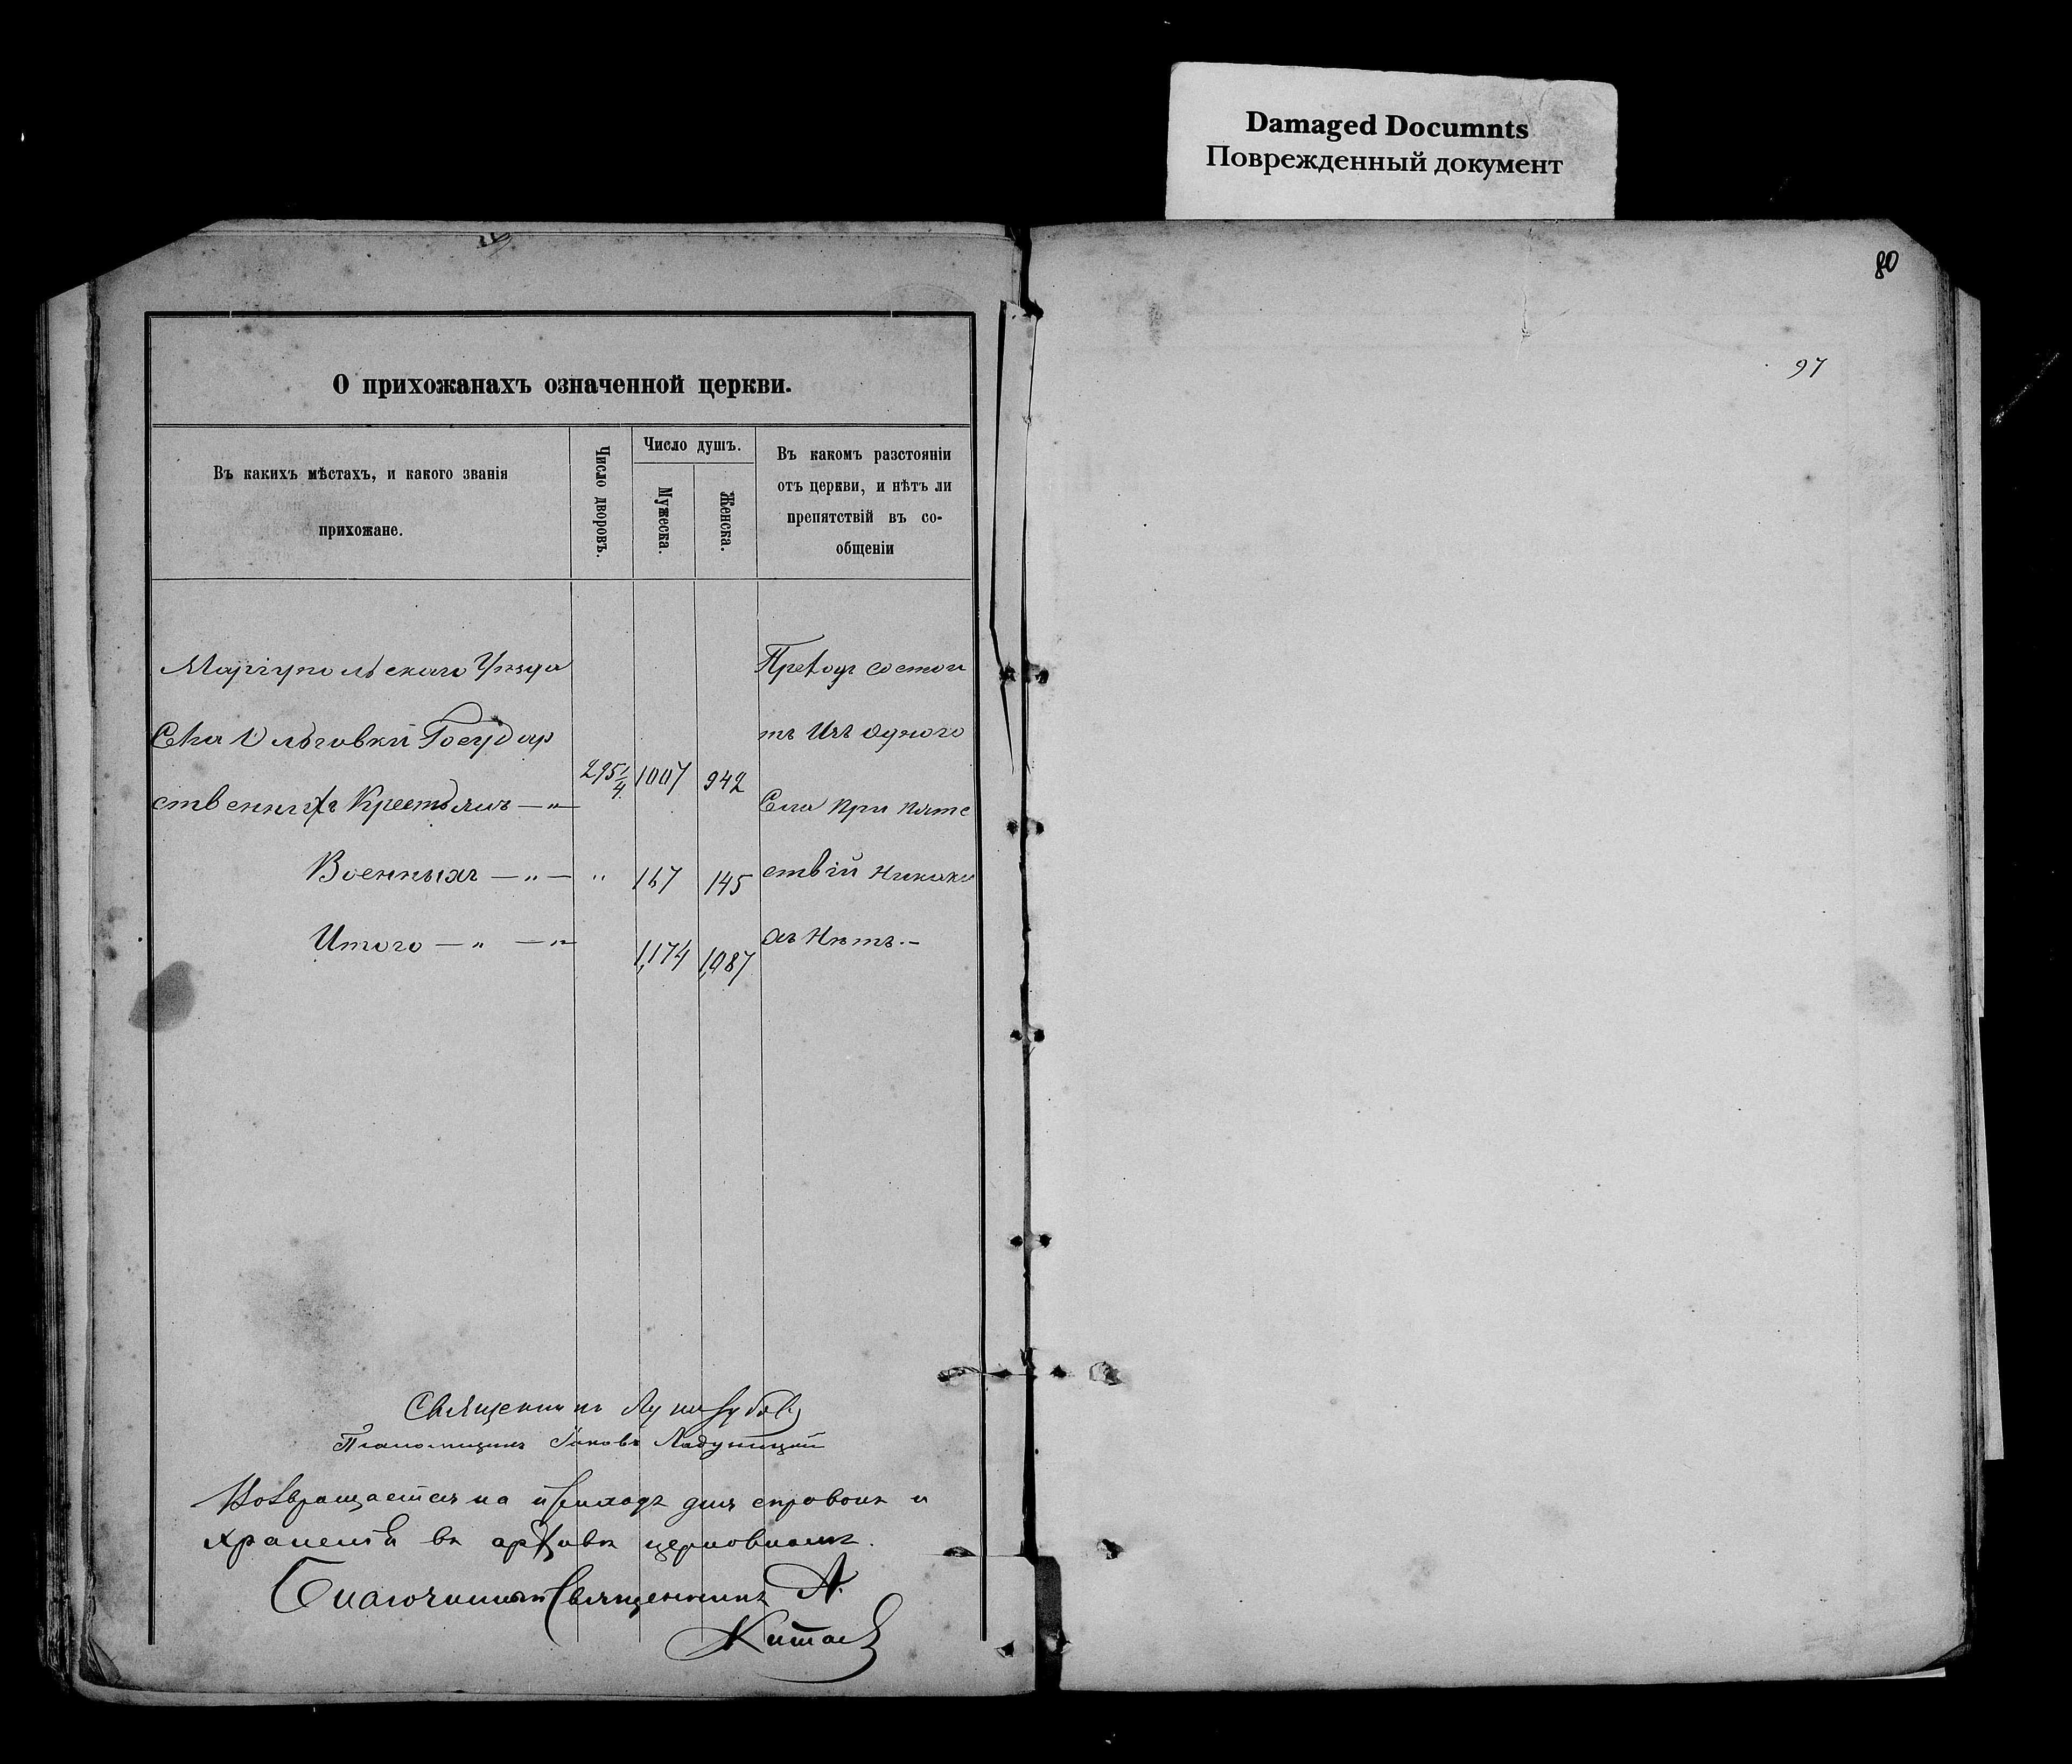 Damaged Documnts
Поврежденный документ
80
97
О прихожанахъ означенной церкви.
Въ какихъ мѣстахъ, и какого званія
прихожане.
Число дворовъ.
Число душъ.
Мужеска.
Женска.
Въ какомъ разстояніи
отъ церкви, и нѣтъ ли
препятствій въ со-
общеніи
Маріупольскаго Уѣзда
Села Ольговки Государ
ственныхъ Крестьянъ — „ —
295 1/4 1007 942
Военныхъ — „ — „ 167 145
Итого — „ — „ —
1,174 1,087
Приходъ состои
тъ Изъ одного
Села при пятс
ствій никаки
хъ Нѣтъ. —
Священникъ
Псаломщикъ Іаковъ
Возвращается на приходъ для справокъ и
храненія въ архивѣ церковномъ.
Благочинный Священникъ А.
Китаевъ